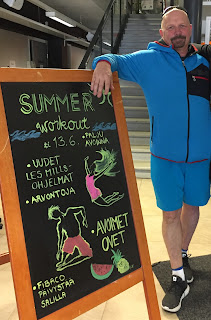 SUMMER
workout
13.6.
• PALJU
AVOINNA
• UUDET
LES MILLS-
OHJELMAT
• ARVONTOJA
• AVOIMET
OVET
• FIBACO
PÄIVYSTÄÄ
SALILLA